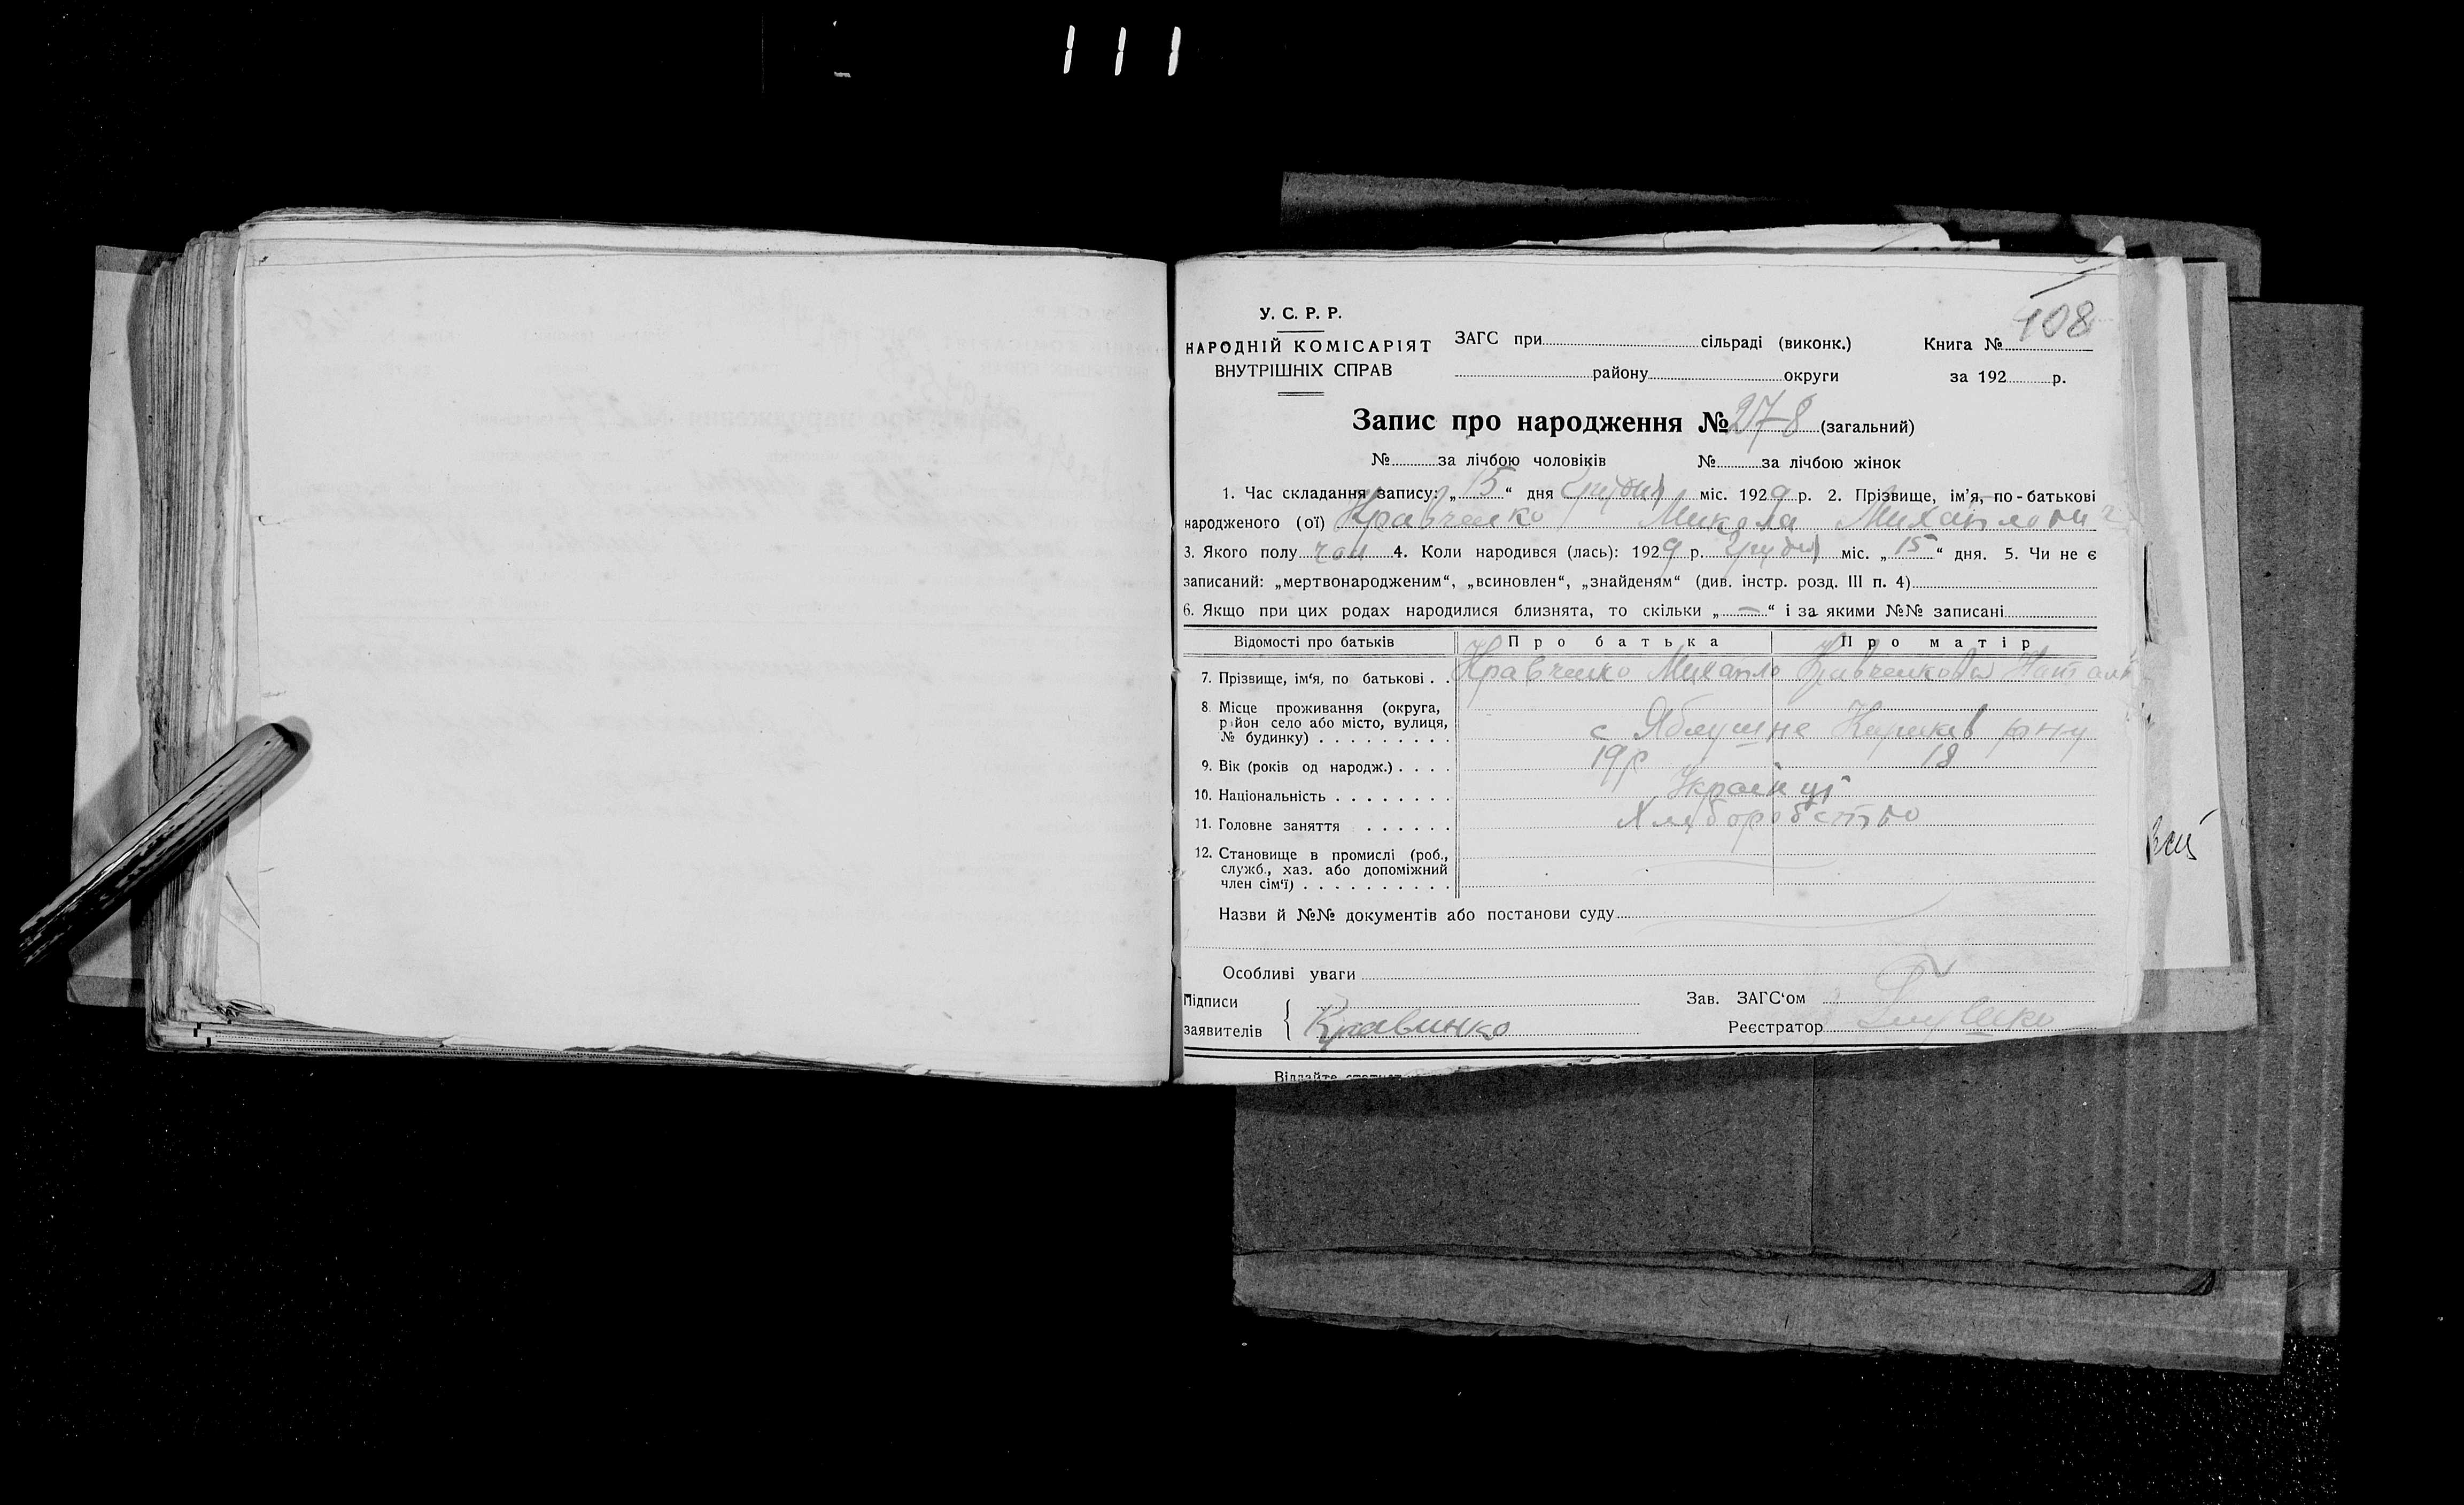 111
108
У. С. Р. Р.
НАРОДНІЙ КОМІСАРІЯТ
ВНУТРІШНІХ СПРАВ
ЗАГС при сільраді (виконк.)
району округи
Книга №
за 192 р.
Запис про народження № 278 (загальний)
№ за лічбою чоловіків № за лічбою жінок
1. Час складання запису: „ 15 “ дня Грудня міс. 1929 р. 2. Прізвище, ім’я, по-батькові
народженого (ої) Кравченко Микола Михайлович
3. Якого полу чол 4. Коли народився (лась): 1929 р. Грудня міс. „ 15 “ дня. 5. Чи не є
записаний: „мертвонародженим“, „всиновлен“, „знайденям“ (див. інстр. розд. III п. 4)
6. Якщо при цих родах народилися близнята, то скільки „ — “ і за якими №№ записані
Відомості про батьків Про батька Про матір
7. Прізвище, ім‘я, по батькові . . Кравченко Михайло Кравченкова Натал
8. Місце проживання (округа,
район село або місто, вулиця,
№ будинку) . . . . . . . . . с Яблушне рну
9. Вік (років од народж.) . . . . 19р 18
10. Національність . . . . . . . . Українці
11. Головне заняття . . . . . . Хліборобство
12. Становище в промислі (роб.,
служб., хаз. або допоміжний
член сім‘ї) . . . . . . . . . .
Назви й №№ документів або постанови суду
Особливі уваги
Підписи
заявителів Кравчинко
Зав. ЗАГС‘ом
Реєстратор